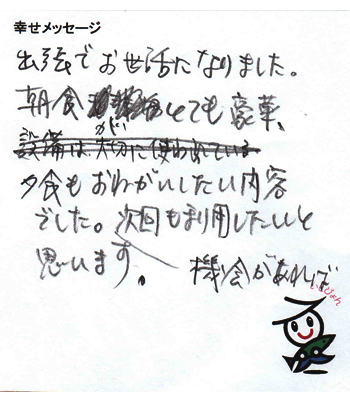 幸せメッセージ
出張でお世話になりました。
朝食がとても豪華、
設備は大切に使われている
夕食もおねがいしたい内容
でした。次回も利用したいと
思います。機会があれば